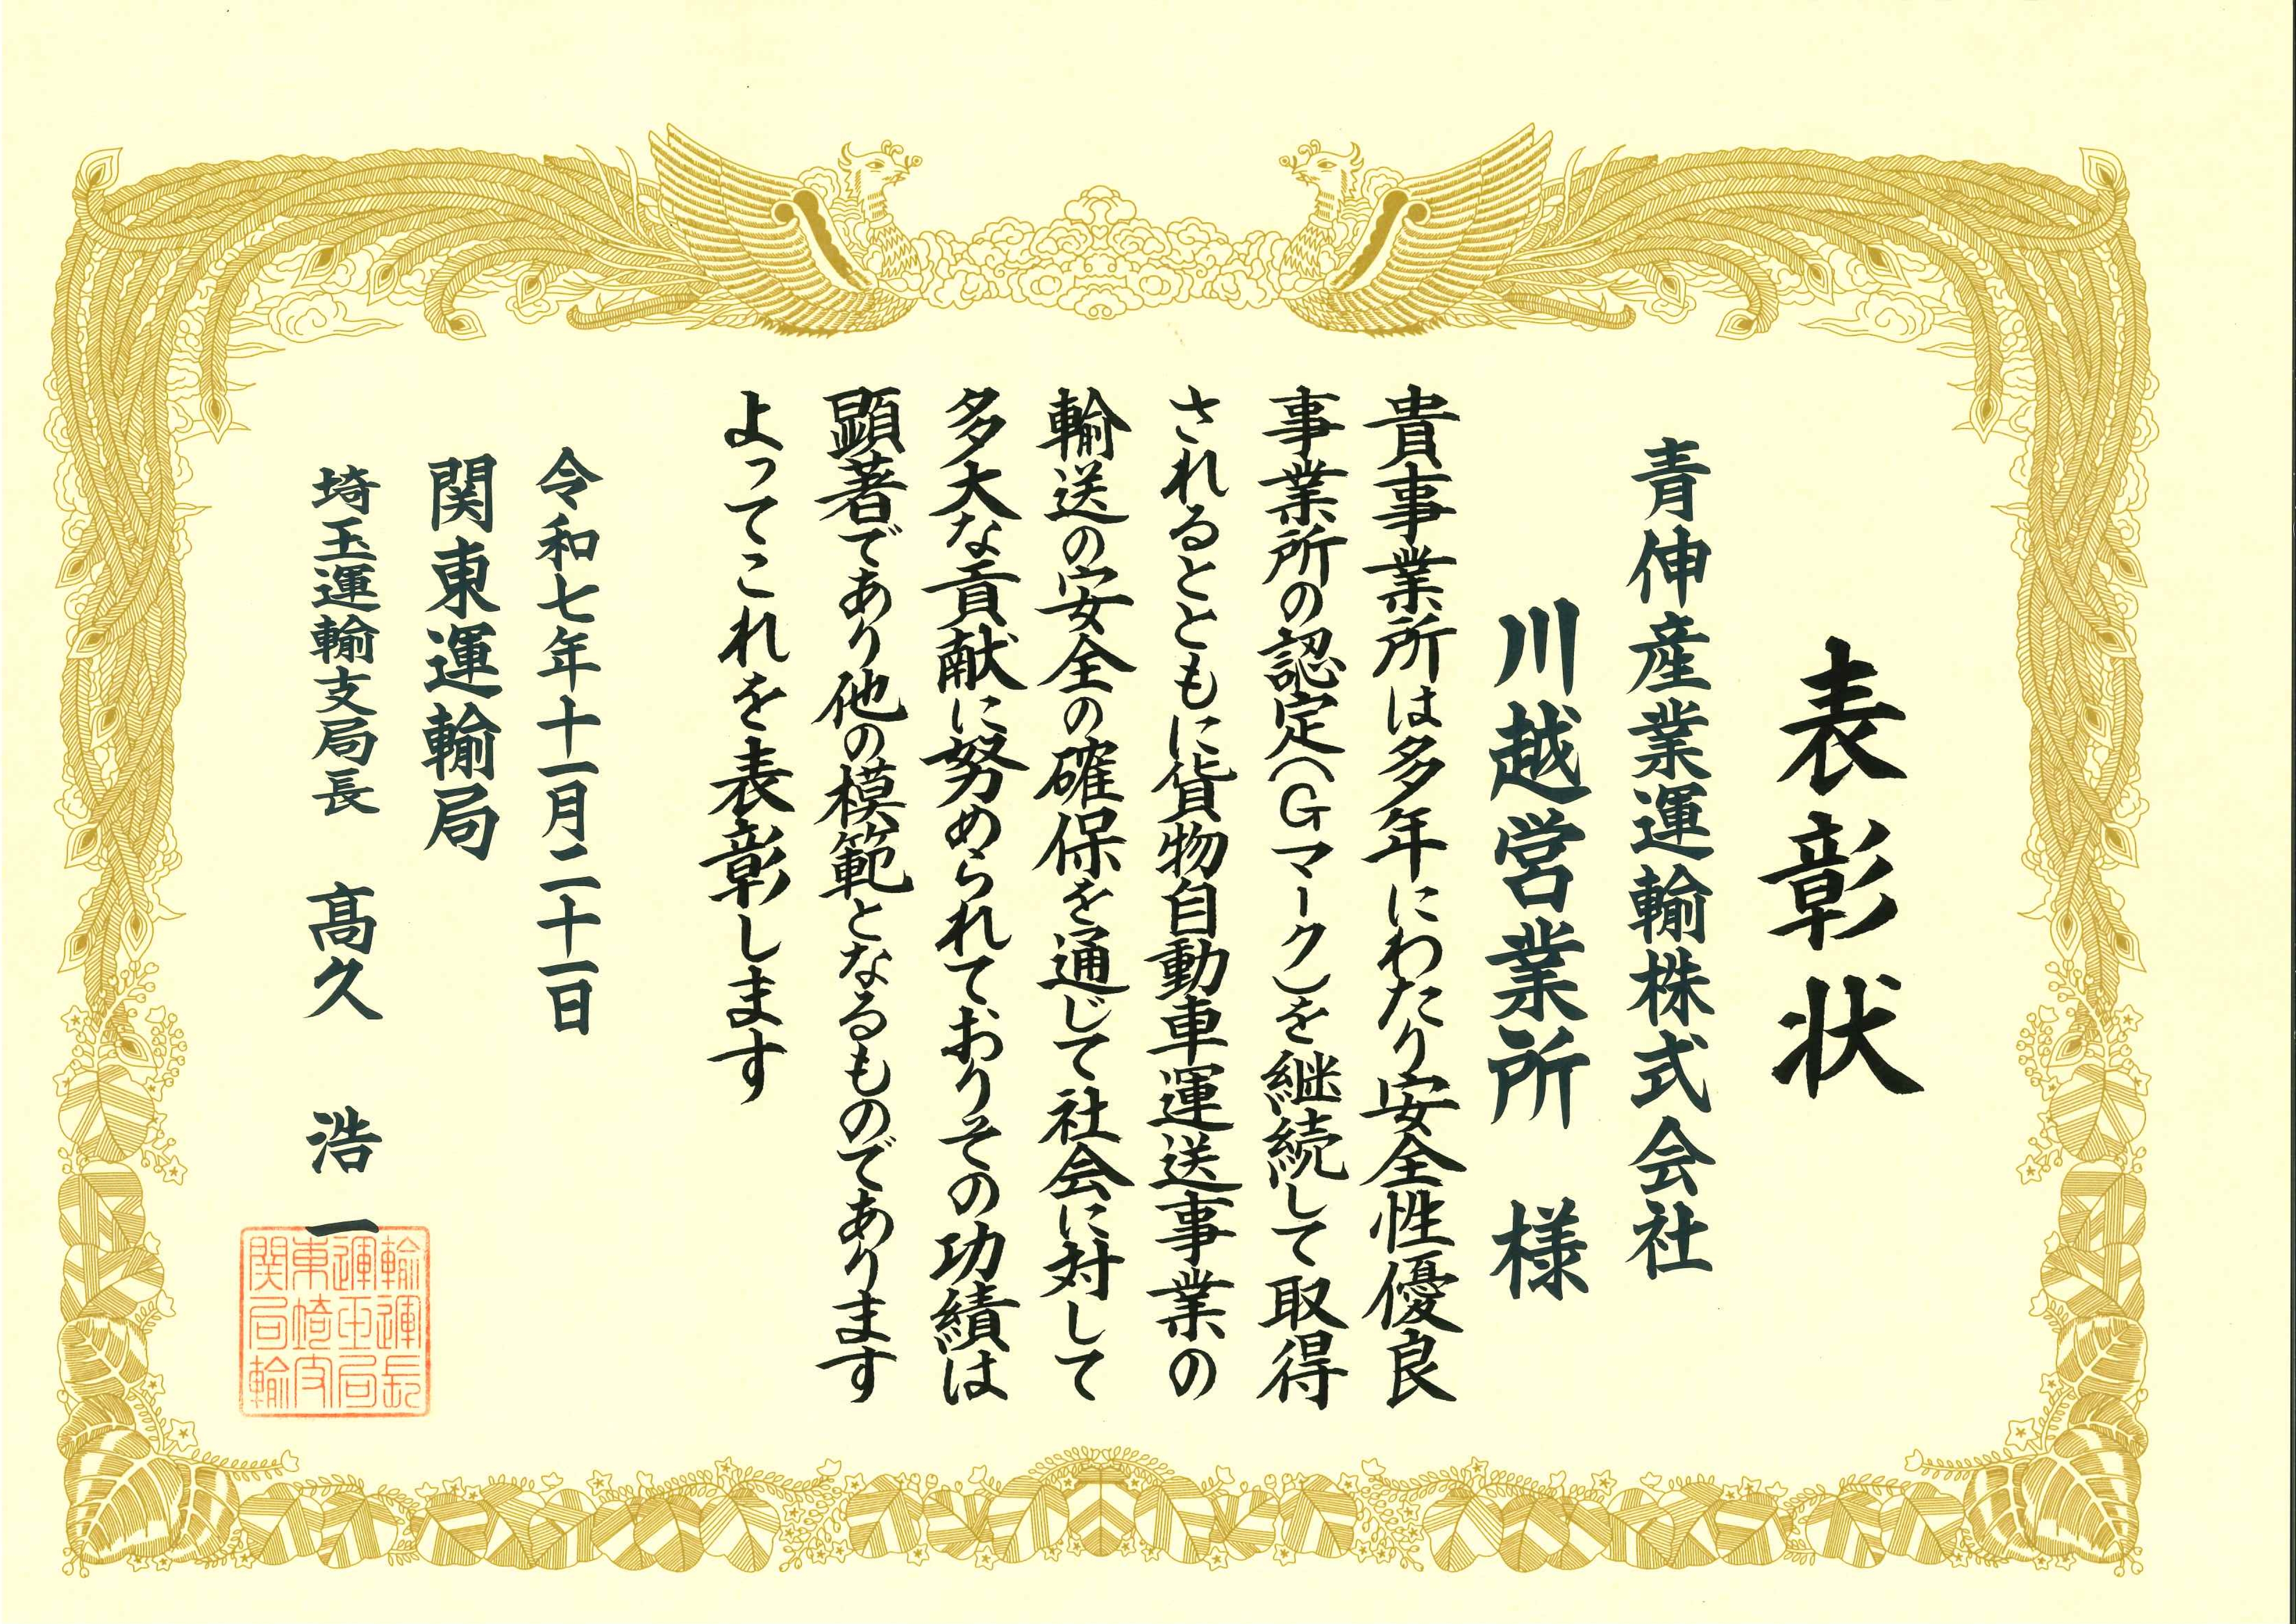 表彰状
青伸産業運輸株式会社
川越営業所 様
貴事業所は多年にわたり安全性優良
事業所の認定(Gマーク)を継続して取得
されるとともに貨物自動車運送事業の
輸送の安全の確保を通じて社会に対して
多大な貢献に努められておりその功績は
顕著であり他の模範となるものであります
よってこれを表彰します
令和七年十一月二十一日
関東運輸局
埼玉運輸支局長 髙久 浩一
輸運長
運玉局
東埼支
関局輸